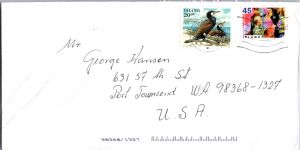 ÍSLAND
20.00
45
ÍSLAND
Mr
George Hansen
631 57th St.
Port Townsend WA 98368-1327
U.S.A
98368/1327